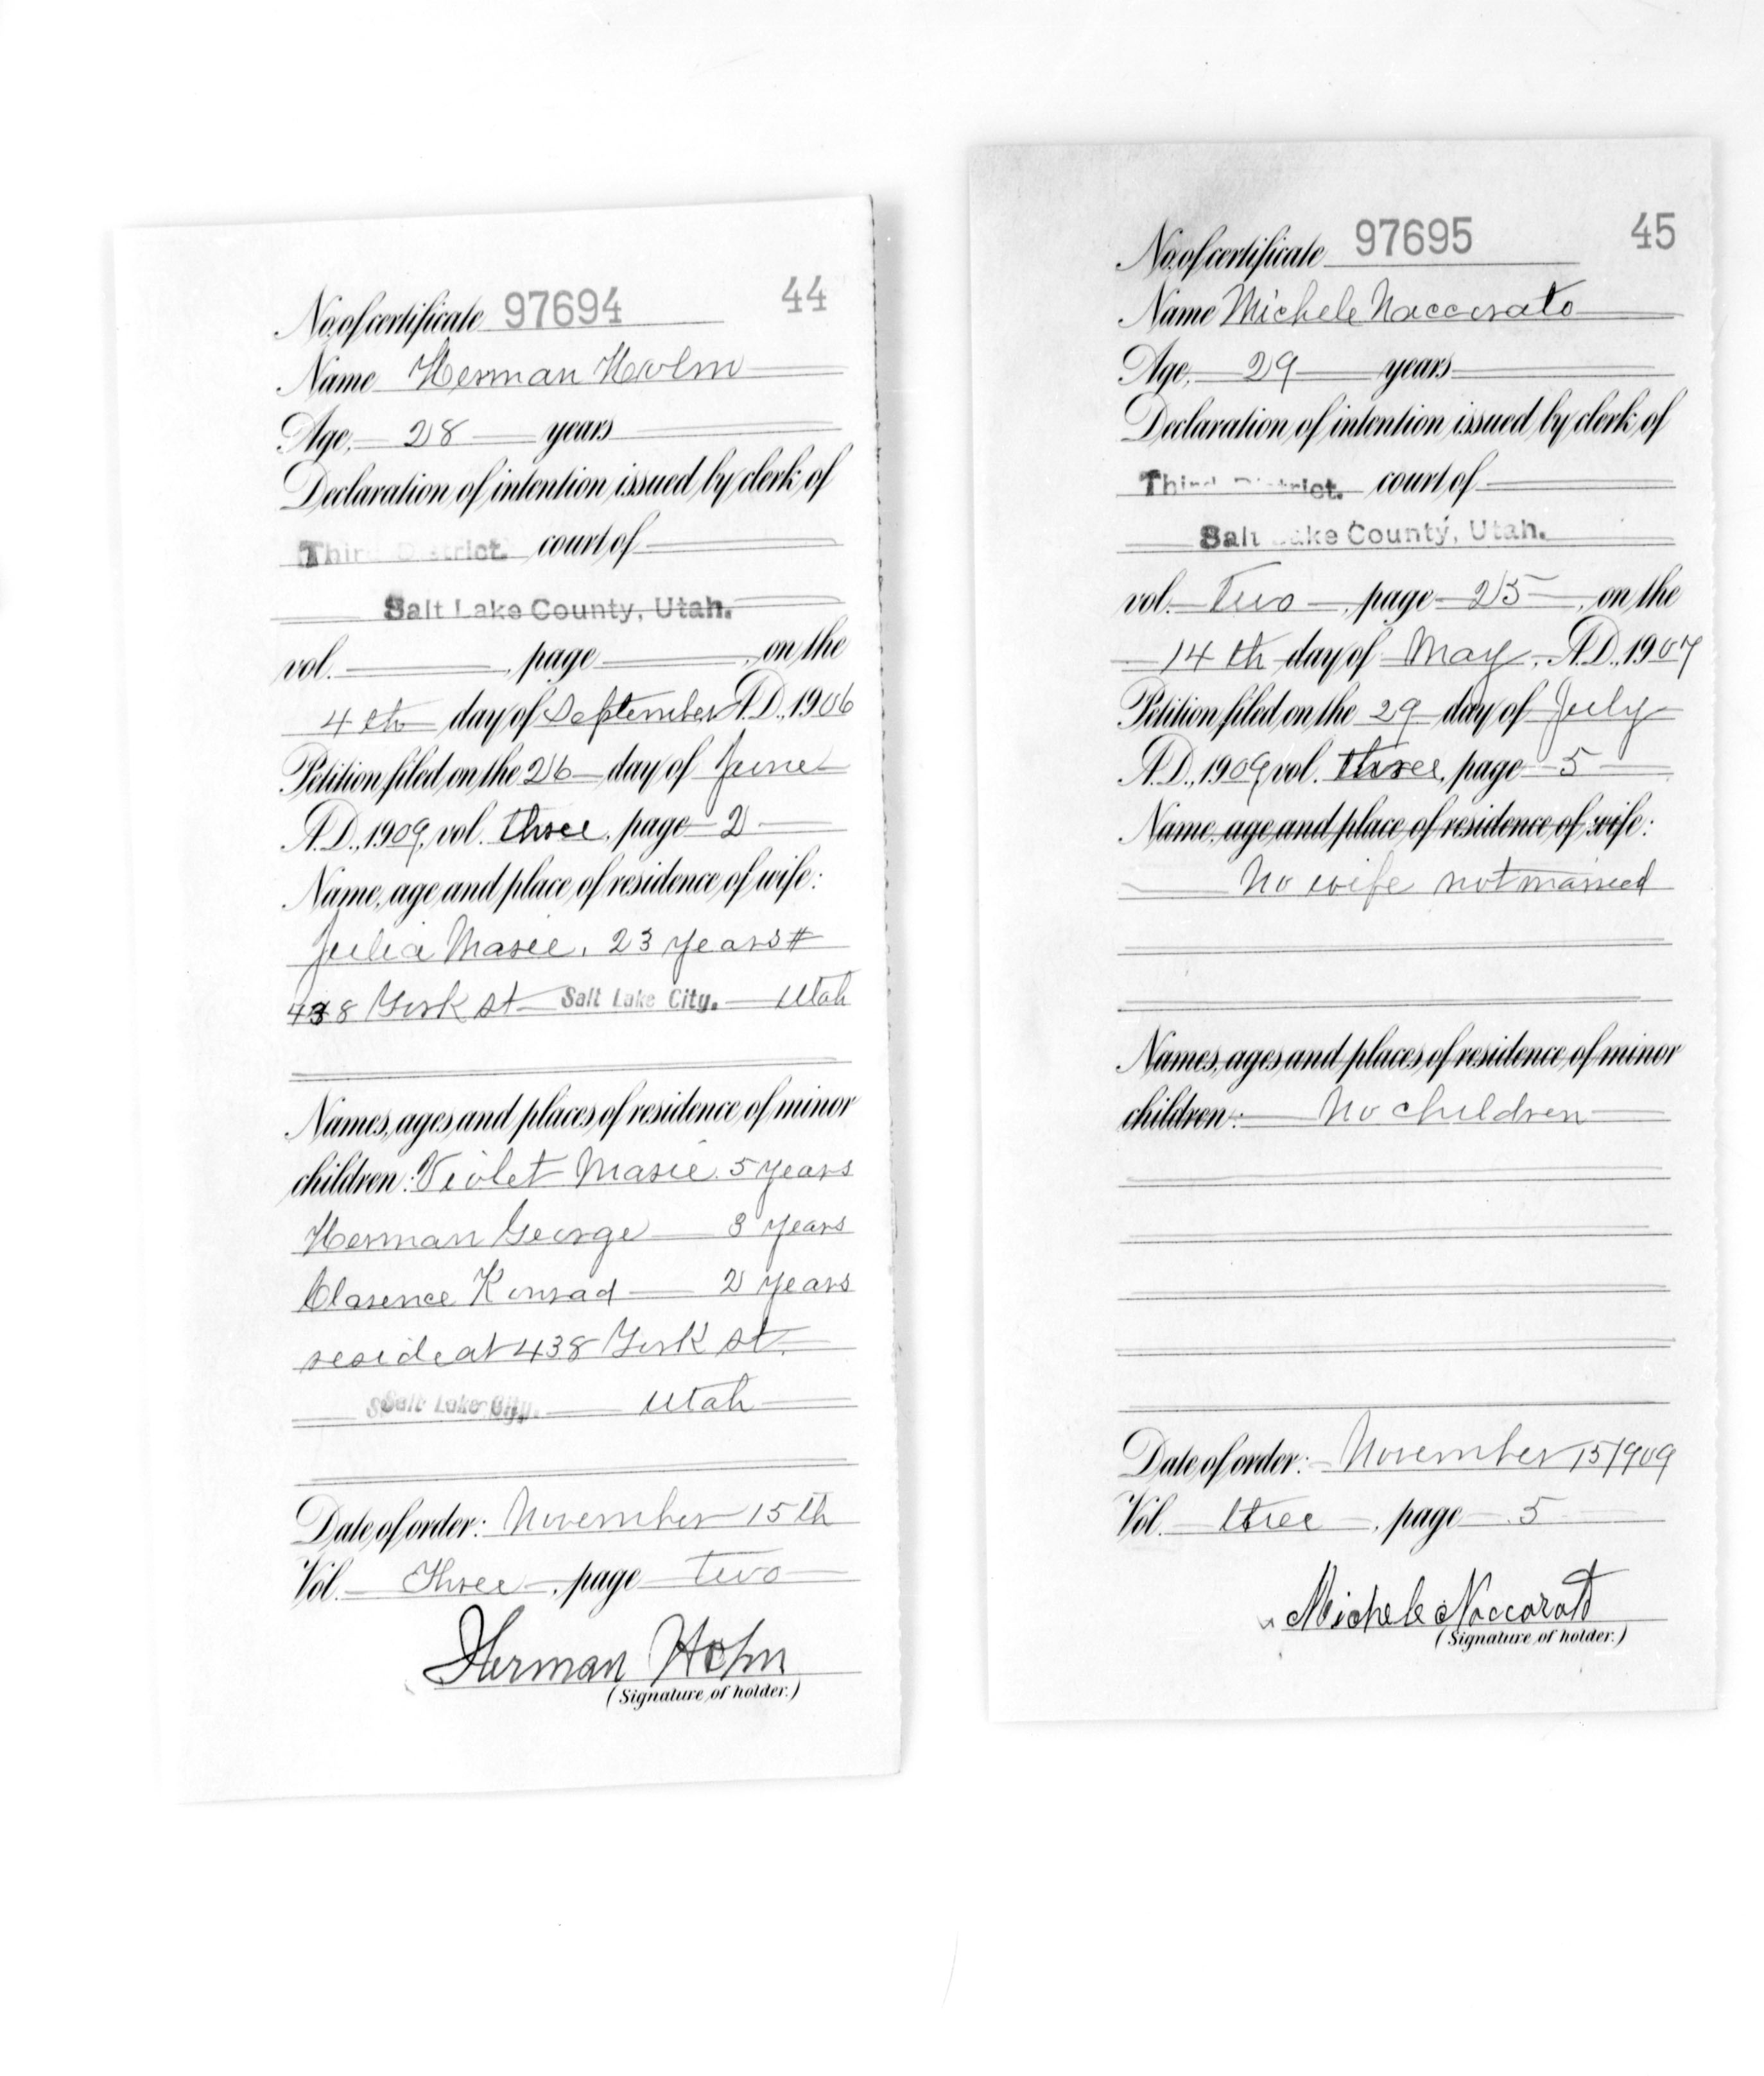 No. of certificate 97694 44
Name Herman Holm
Age, 28 years
Declaration of intention issued by clerk of
Third District. court of
Salt Lake County, Utah.
vol. , page , on the
4th day of September A.D., 1906
Petition filed on the 26 day of June
A.D., 1909, vol. three, page 2
Name, age and place of residence of wife:
Julia Marie, 23 years #
438 York st Salt Lake City. Utah
Names, ages and places of residence of minor
children: Violet Marie. 5 years
Herman George 3 years
Clarence Konrad 2 years
reside at 438 York st.
Salt Lake City. Utah
Date of order: November 15th
Vol. Three, page two
Herman Holm
(Signature of holder.)
No. of certificate 97695 45
Name Michele Naccarato
Age, 29 years
Declaration of intention issued by clerk of
Third District. court of
Salt Lake County, Utah.
vol. Two, page 25, on the
14th day of May, A.D., 1907
Petition filed on the 29 day of July
A.D., 1909, vol. three, page 5
Name, age and place of residence of wife:
No wife not married
Names, ages and places of residence of minor
children: No children
Date of order: November 15 1909
Vol. three, page 5
Michele Naccarato
(Signature of holder.)